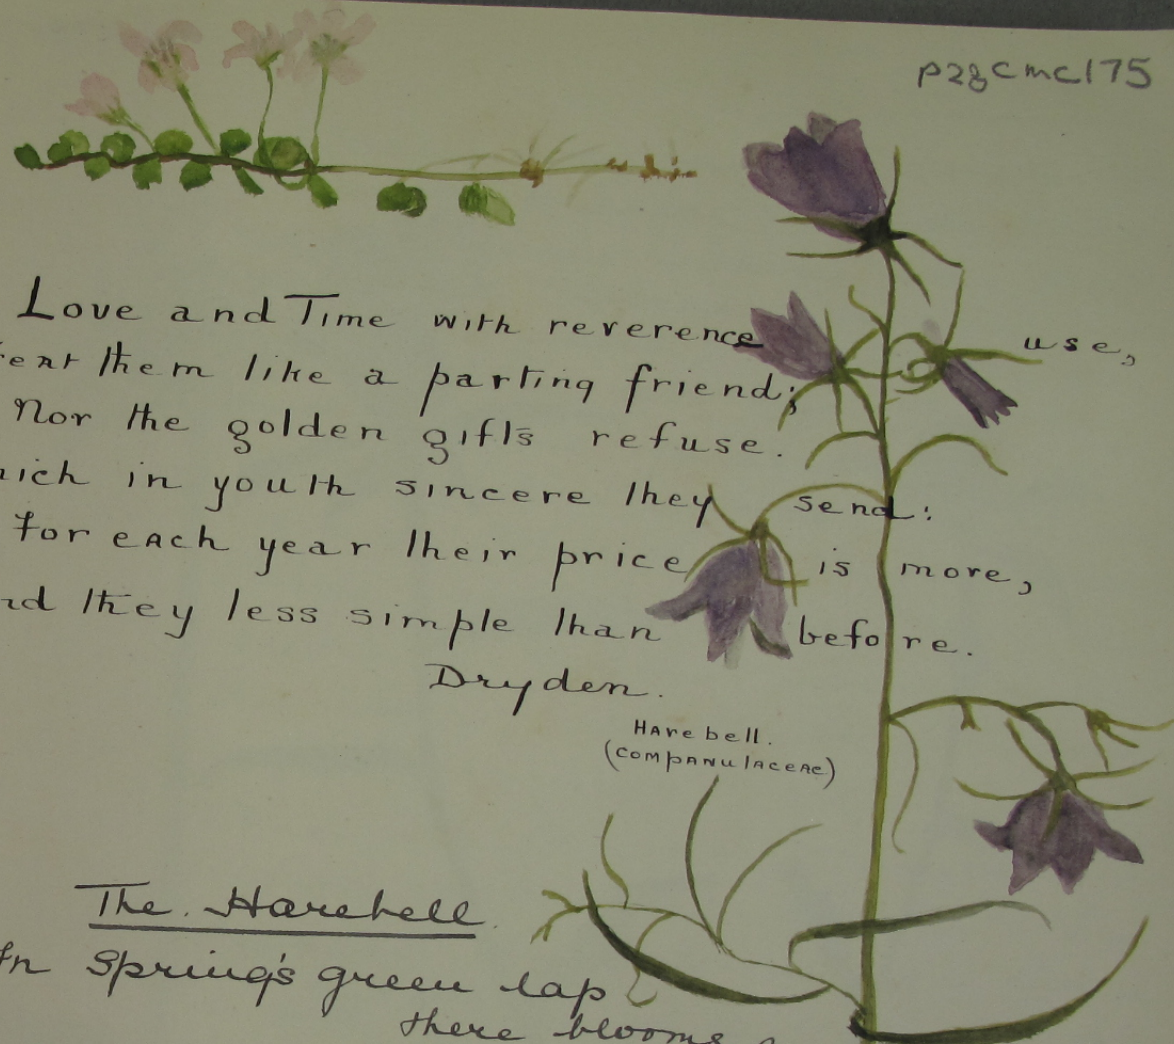 pzgcmc175
Love and Time with reverence use,
them like a parting friend;
Nor the golden gifts refuse.
in youth sincere they send:
for each year their price is more,
they less simple than before.
Dryden.
Harebell.
(Companulaceae)
The Harebell.
In Spring's green lap
there blooms